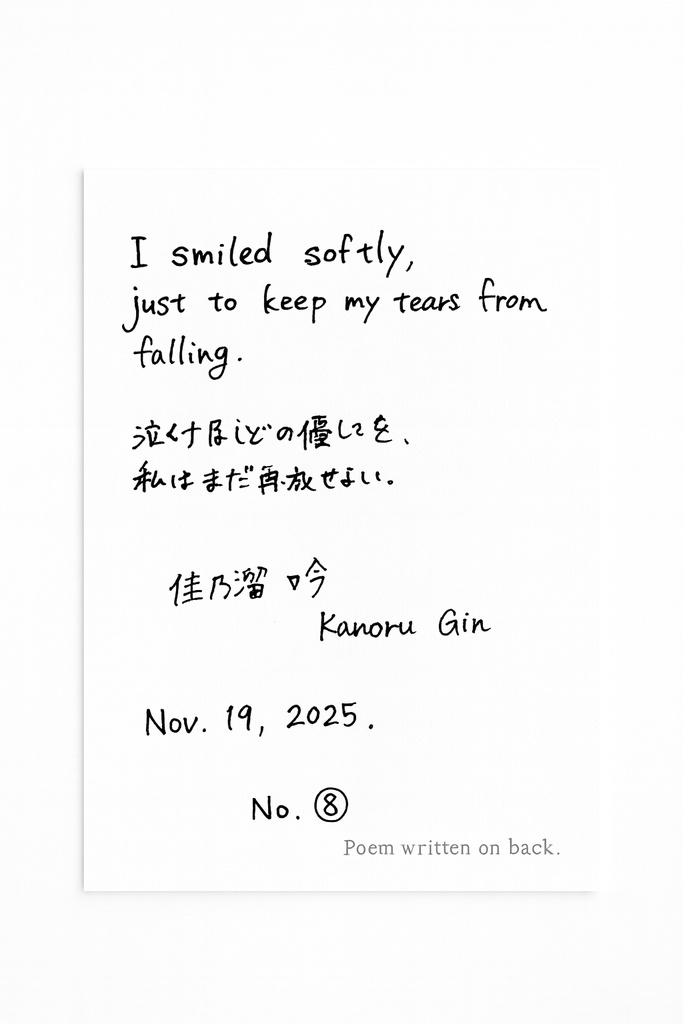 I smiled softly,
just to keep my tears from
falling.
泣くけほどの優しさを、
私はまだ再放せない。
佳乃溜 吟
Kanoru Gin
Nov. 19, 2025.
No. ⑧
Poem written on back.